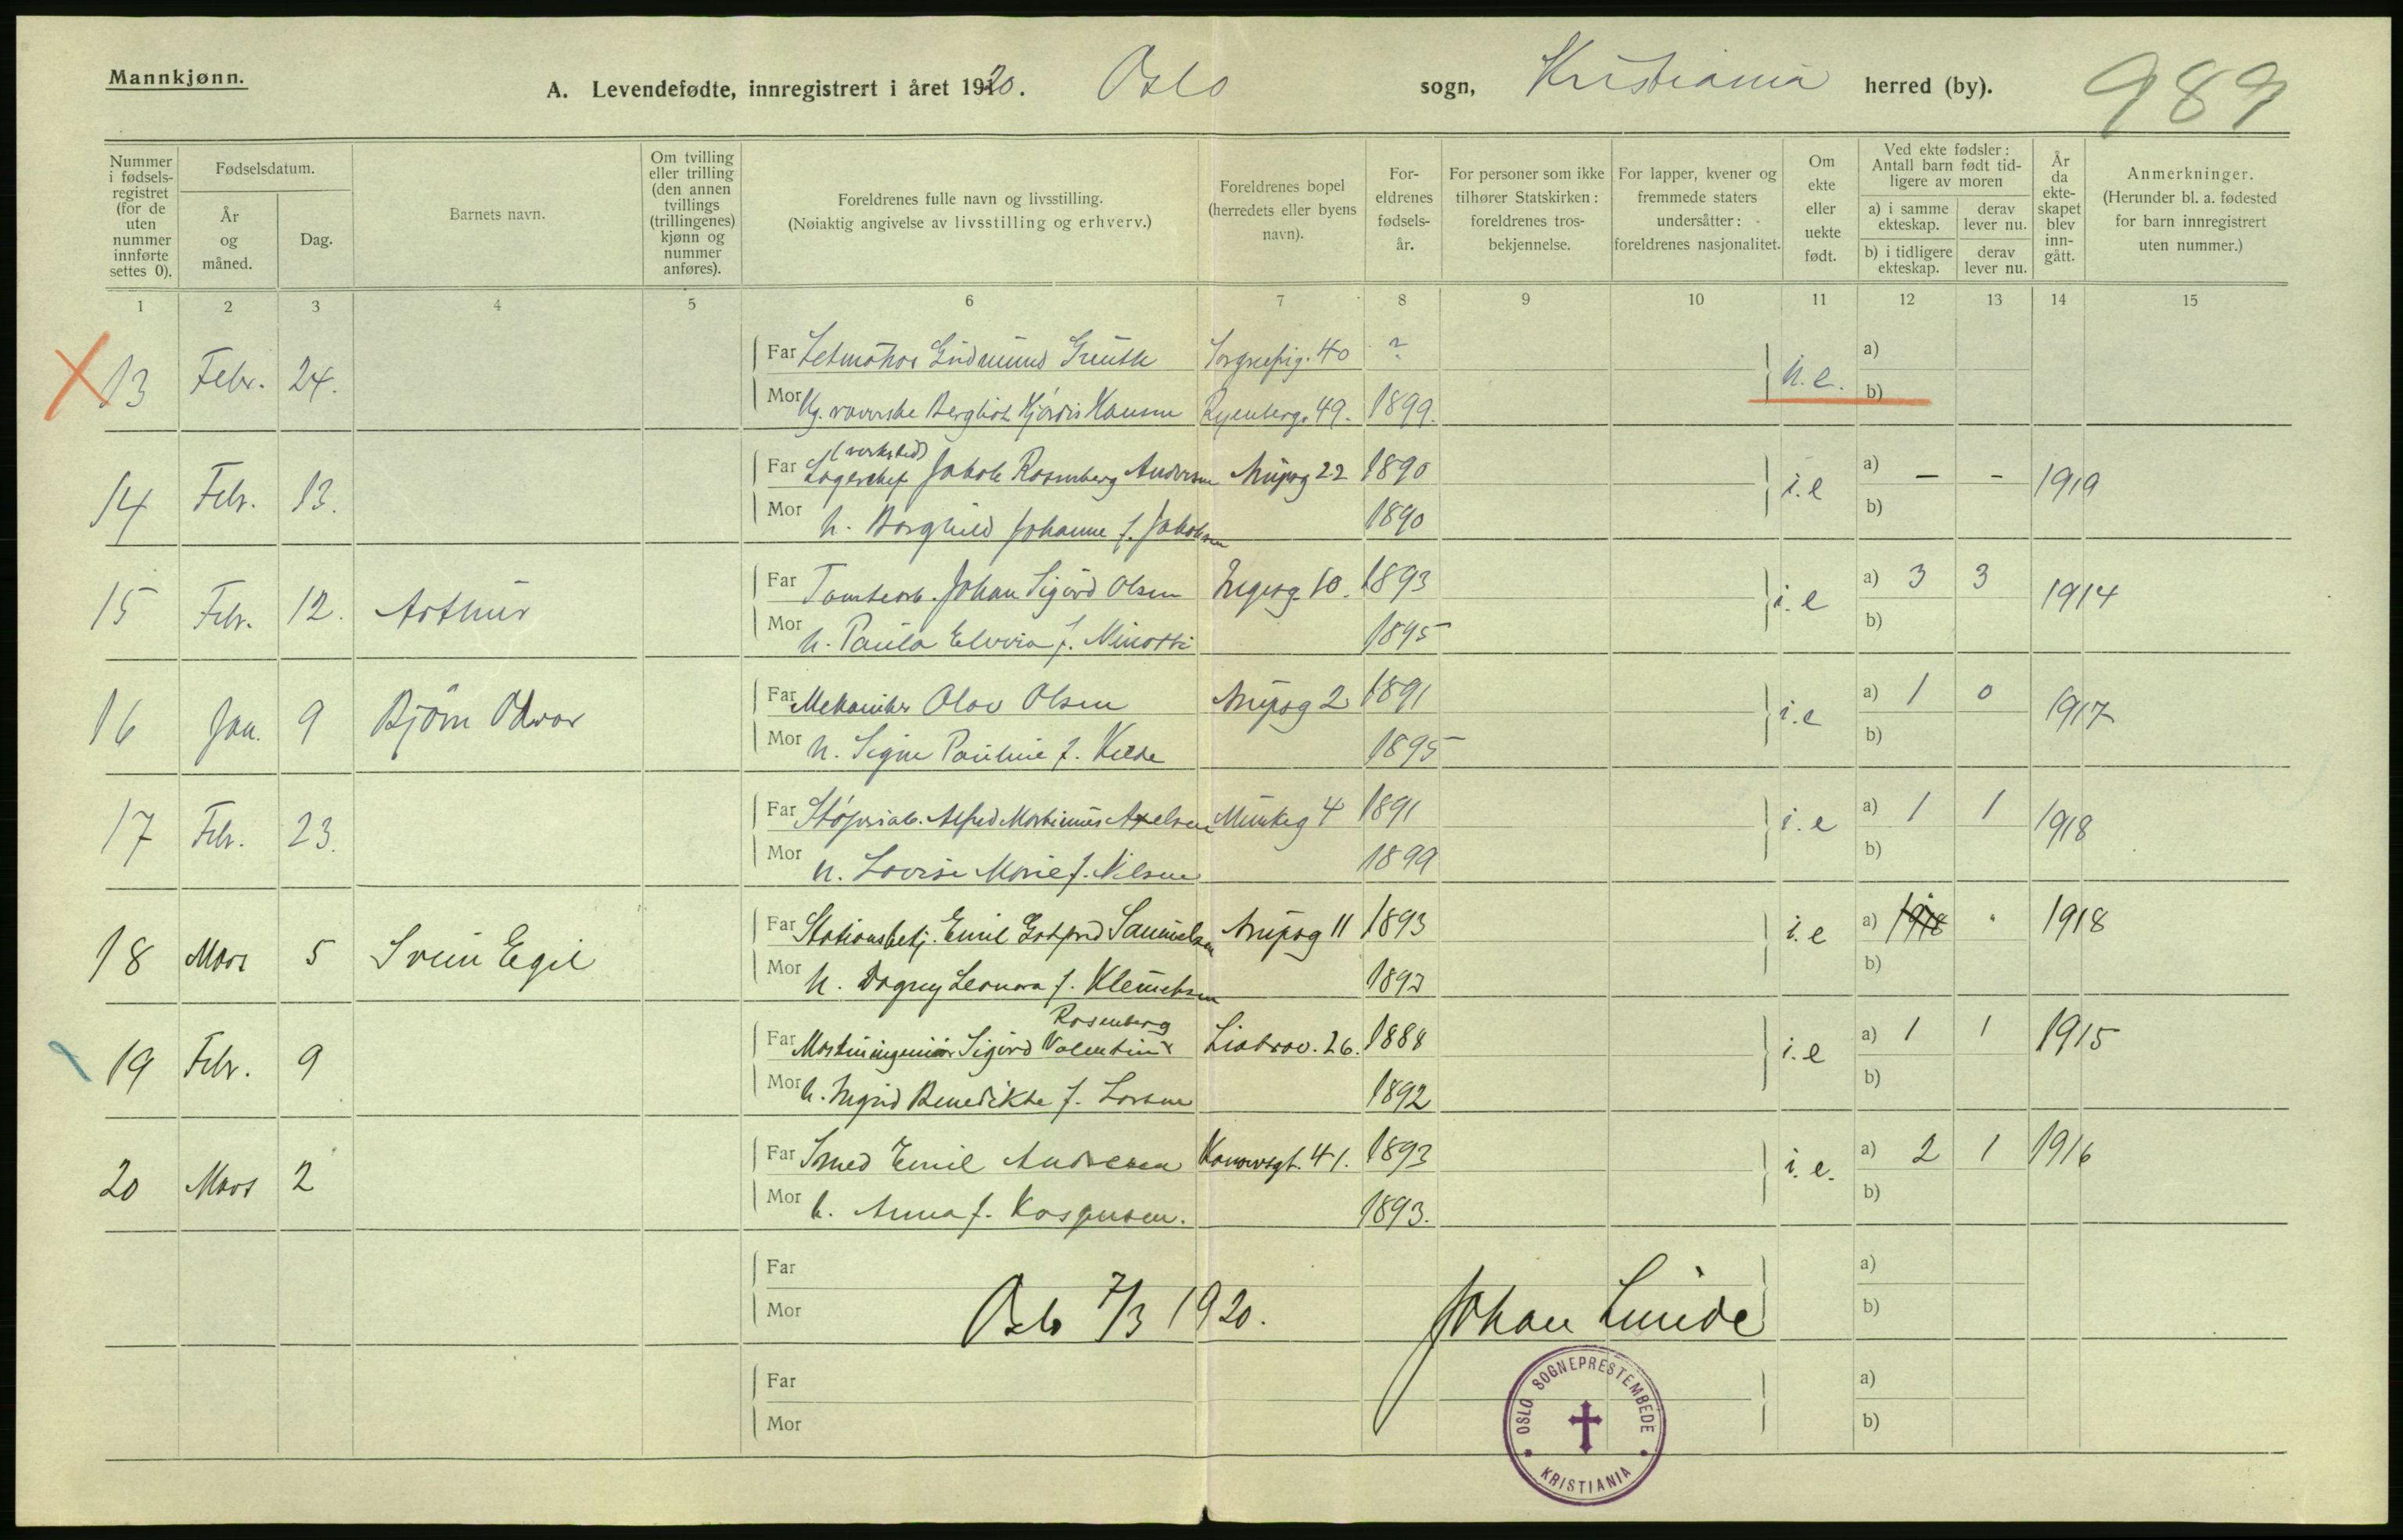 Mannkjønn.
A. Levendefødte, innregistrert i året 1920. Oslo sogn, Kristiania herred (by). 989
Nummer i fødsels-registret (for de uten nummer innførte settes 0).
Fødselsdatum.
År og måned.
Dag.
Barnets navn.
Om tvilling eller trilling (den annen tvillings (trillingenes) kjønn og nummer anføres).
Foreldrenes fulle navn og livsstilling.
(Nøiaktig angivelse av livsstilling og erhverv.)
Foreldrenes bopel (herredets eller byens navn).
For-eldrenes fødsels-år.
For personer som ikke tilhører Statskirken: foreldrenes tros-bekjennelse.
For lapper, kvener og fremmede staters undersåtter: foreldrenes nasjonalitet.
Om ekte eller uekte født.
Ved ekte fødsler: Antall barn født tid-ligere av moren
a) i samme ekteskap. derav lever nu.
b) i tidligere ekteskap. derav lever nu.
År da ekte-skapet blev inn-gått.
Anmerkninger.
(Herunder bl. a. fødested for barn innregistrert uten nummer.)
1 2 3 4 5 6 7 8 9 10 11 12 13 14 15
Far Gudmund 40 ? a)
13 Febr. 24. u.e.
Mor Bergliot Hjördis Hansen Ryenberg. 49. 1899. b)
(verksted)
Far Lagerchef Jakob Rosenberg Andersen Arupsg 22 1890 a) - -
14 Febr. 13. i.e 1919
Mor h. Borghild Johanne f. Jakobsen 1890 b)
Far Tomtearb. Johan Sigurd Olsen 10. 1893 a) 3 3
15 Febr. 12. Arthur i.e 1914
Mor h. Paula Elvira f. Minotti 1895 b)
Far Mekaniker Olav Olsen Arupsg 2 1891 a) 1 0
16 Jan. 9 Bjørn Odvar i.e 1917
Mor h. Signe Pauline f. Kilde 1895 b)
Far Støperiarb. Alfred Martinius Axelsen Munkeg 4 1891 a) 1 1
17 Febr. 23. i.e 1918
Mor h. Lovise Marie f. Nilsen 1899 b)
Far Stationsbetj. Emil Gotfred Samuelsen Arupsg 11 1893 a) 1918 " 1918
18 Mars 5 Svein Egil i.e
Mor h. Dagny Leonora f. Klemetsen 1893 b)
Rosenberg
Far Maskiningeniør Sigurd Valentin Liabrov. 26. 1888 a) 1 1 1915
19 Febr. 9 i.e
Mor h. Ingrid Benedikte f. Larsen 1892 b)
Far Smed Emil Andresen Kanowsgt. 41. 1893 a) 2 1 1916
20 Mars 2 i.e.
Mor h. Anna f. Kaspersen. 1893. b)
Far a)
Mor b)
Oslo 7/3 1920. Johan Lunde
Far a)
Mor b)
OSLO SOGNEPRESTEMBEDE
KRISTIANIA